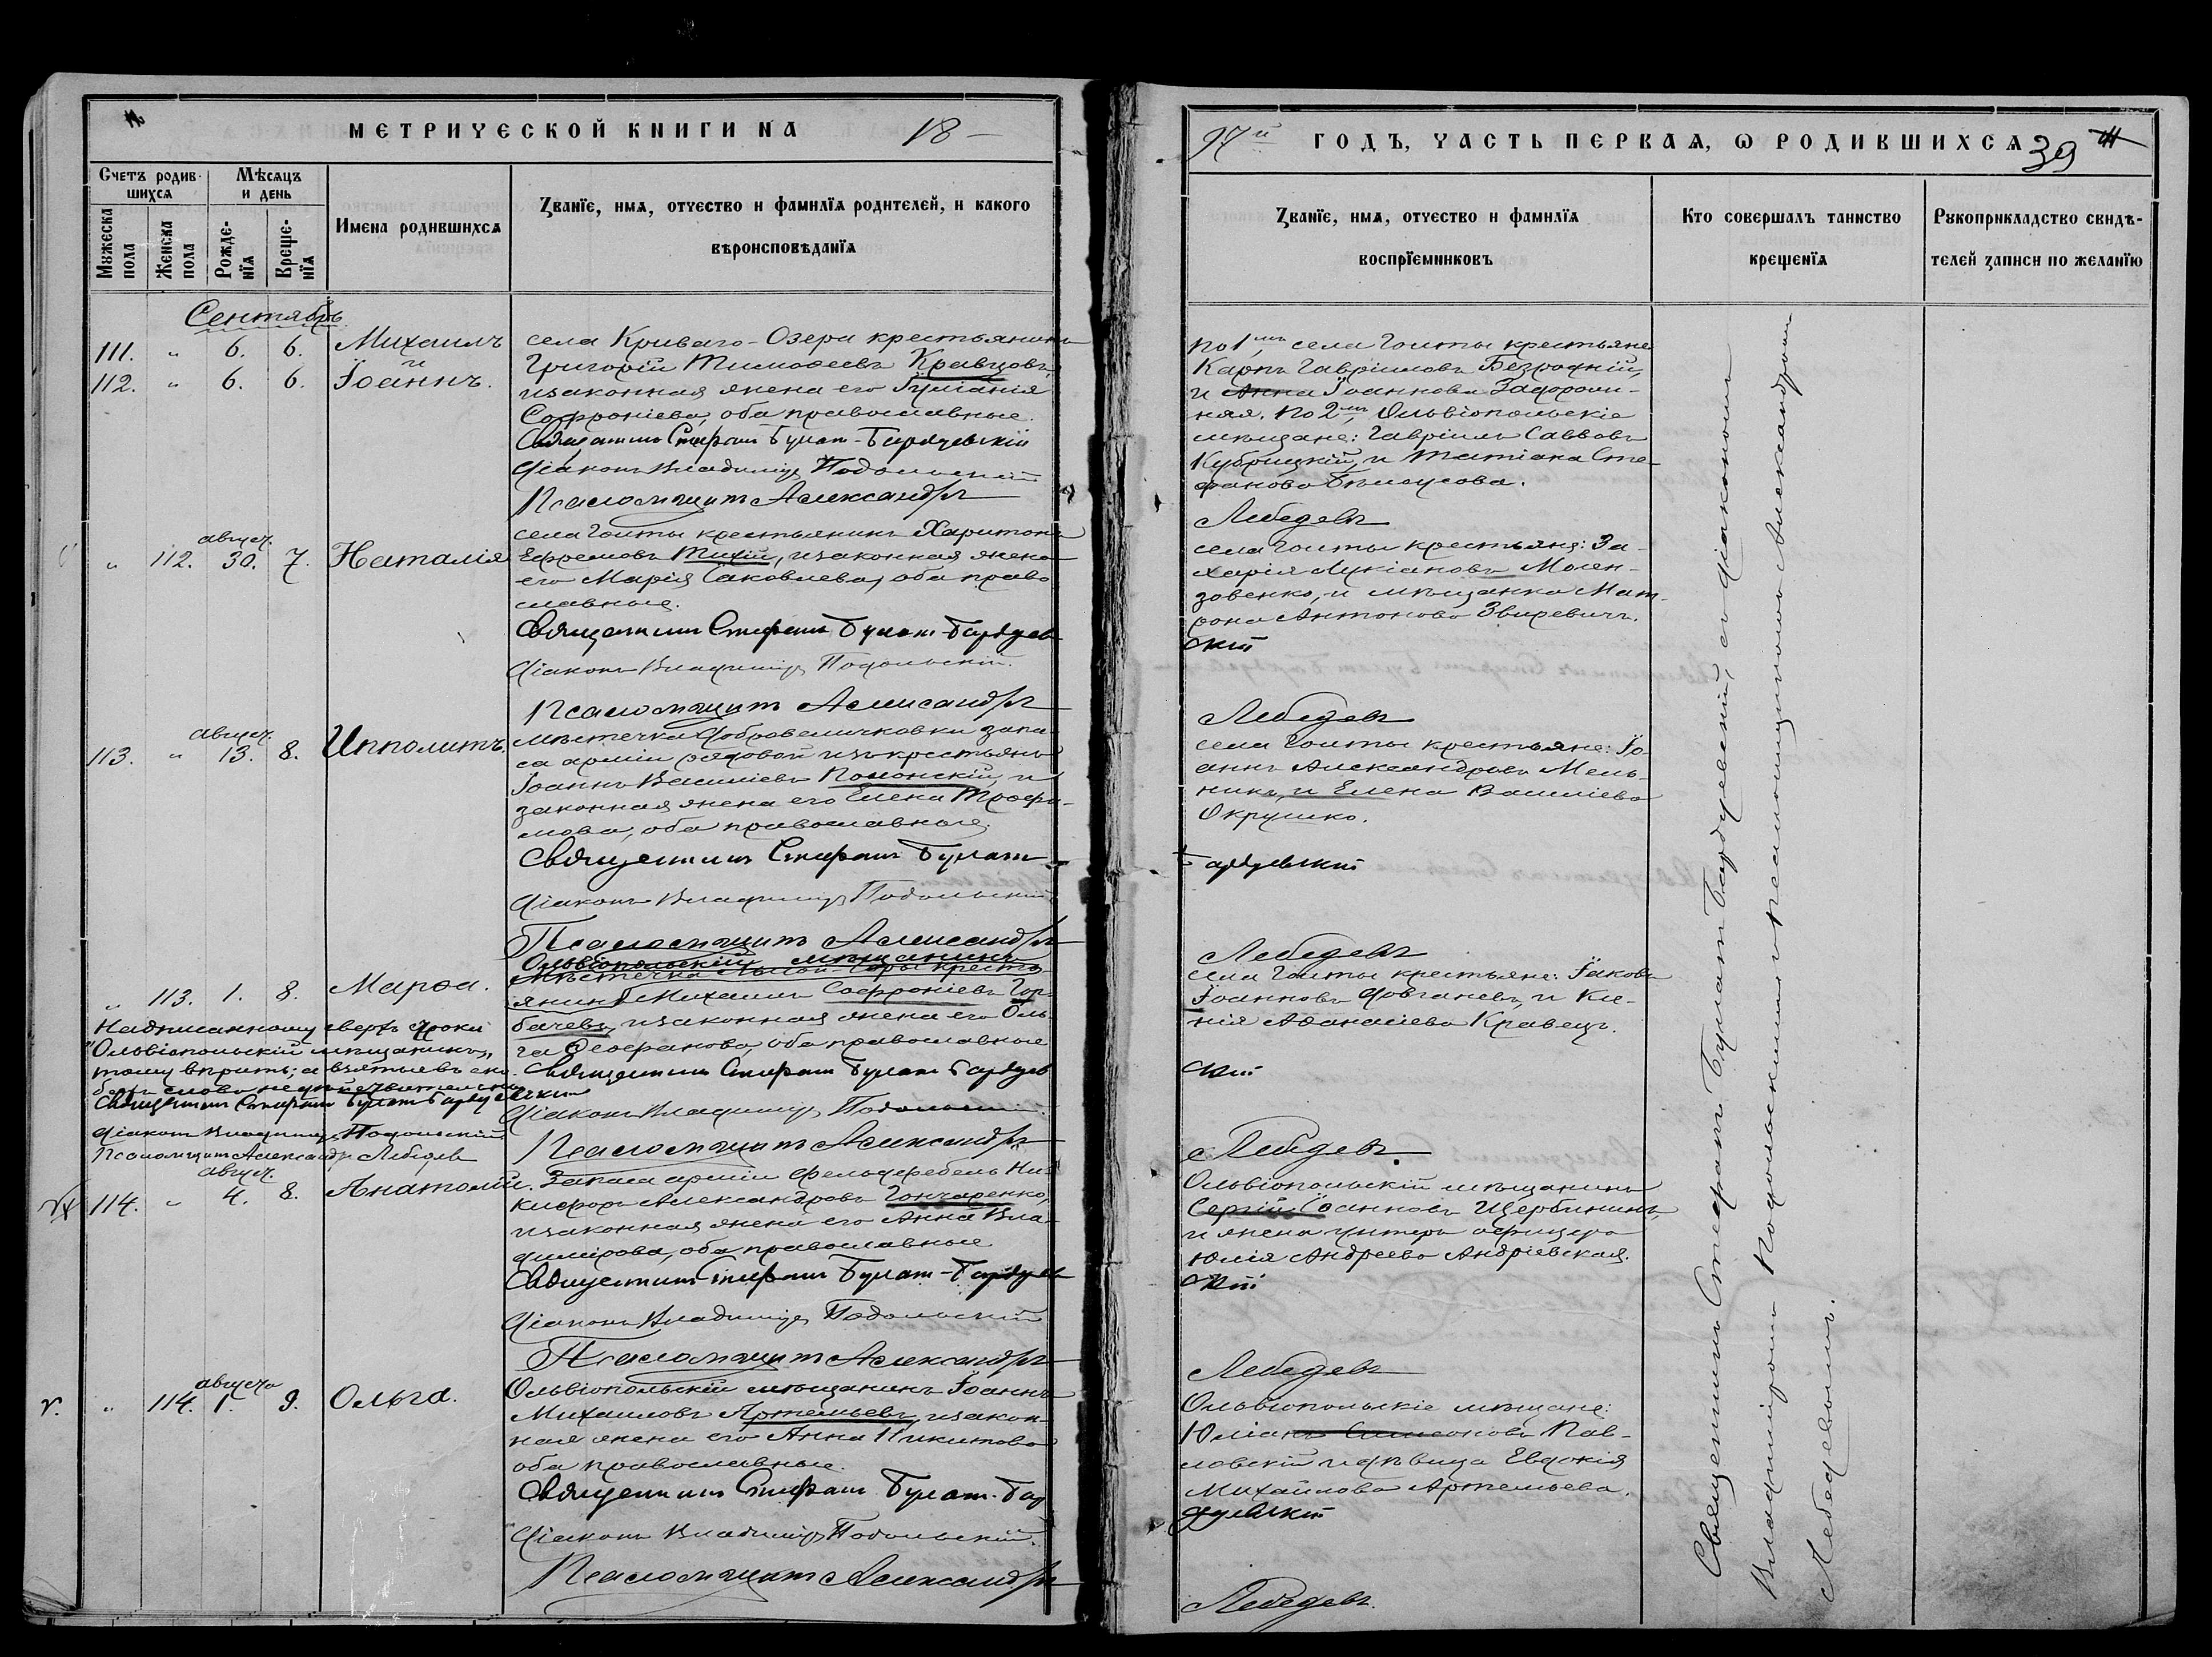 МЕТРИЧЕСКОЙ КНИГИ НА 18
Счетъ родив-
шихся
Мѣсяцъ
и день
Мужеска
пола
Женска
пола
Рожде-
нїя
Креще-
нїя
Имена родившихся
Званїе, имя, отчество и фамилїя родителей, и какого
вѣроисповѣданїя
Сентябрь
111. " 6. 6. Михаилъ
и
112. " 6. 6. Іоаннъ.
села Криваго-Озера крестьянинъ
Григорій Тимоѳеевъ Кравцовъ,
и законная жена его Іуліанія
Софроніева, оба православные.
Священникъ Стефанъ Булат-Бардуевскій
Діаконъ Владиміръ Подольскій
Псаломщикъ Александръ
август.
" 112. 30. 7. Наталія
села Голты крестьянинъ Харитонъ
Ефремовъ Тихій, и законная жена
его Марія Іаковлева, оба право
славные.
Священникъ Стефанъ Булат-Бардуев
Діаконъ Владиміръ Подольскій.
Псаломщикъ Александръ
август.
113. " 13. 8. Ипполитъ
мѣстечка Добровеличковки запа-
са арміи рядовой изъ крестьянъ
Іоаннъ Василіевъ Полонскій, и
законная жена его Елена Трофи-
мова, оба православные.
Священникъ Стефанъ Булат-
Діаконъ Владиміръ Подольскій.
Псаломщикъ Александръ
" 113. 1. 8. Марѳа.
Ольвіопольскій мѣщанинъ
Мѣстечка Лысой-Горы кресть
янинъ Михаилъ Софроніевъ Гор-
бачевъ, и законная жена его Оль-
га Ѳеофанова, оба православные
Священникъ Стефанъ Булат Бардуев
Діаконъ Владиміръ Подольскій.
Псаломщикъ Александръ
Надписанному сверхъ строки
"Ольвіопольскій мѣщанинъ"
тому вѣрить; а взятыевъ ско
Священникъ Стефанъ Булат Бардуевскій
Діаконъ Владиміръ Подольскій
Псаломщикъ Александръ Лебедевъ
август.
114. " 4. 8. Анатолій.
Запаса арміи фельдфебель Ни-
кифоръ Александровъ Гончаренко,
и законная жена его Анна Вла-
димірова, оба православные
Священникъ Стефанъ Булат-Бардуев
Діаконъ Владиміръ Подольскій
Псаломщикъ Александръ
августа
" 114. 1. 9. Ольга.
Ольвіопольскій мѣщанинъ Іоаннъ
Михаиловъ Артемьевъ, и закон-
ная жена его Анна Никитова
оба православные.
Священникъ Стефанъ Булат-Бар
Діаконъ Владиміръ Подольскій.
Псаломщикъ Александръ
97й ГОДЪ, ЧАСТЬ ПЕРВАЯ, Ѡ РОДИВШИХСЯ 39
Званїе, имя, отчество и фамилїя
воспрїемниковъ
Кто совершалъ таинство
крещенїя
Рукоприкладство свидѣ-
телей записи по желанїю
По 1мъ села Голты крестьяне
Карпъ Гавріиловъ Безродній,
и Анна Іоаннова Задорож-
ная. По 2мъ, Ольвіопольскіе
мѣщане: Гавріилъ Саввовъ
Кубрицкій, и Татіана Сте-
фанова Бѣлоусова.
Лебедевъ
села Голты крестьяне: За-
харія Лукіановъ Молен-
зовенко, и мѣщанка Мат-
рона Антонова Звиревичъ.
скій
Лебедевъ
села Голты крестьяне: Іо-
аннъ Александровъ Мель-
никъ, и Елена Василіева
Окрушко.
Бардуевскій
Лебедевъ
села Голты крестьяне: Іаковъ
Іоанновъ Довганевъ, и Ксе-
нія Аѳанасіева Кравецъ.
скій
Лебедевъ.
Ольвіопольскій мѣщанинъ
Сергій Іоанновъ Щербининъ,
и жена унтеръ офицера
Юлія Андреева Андріевская.
скій
Лебедевъ
Ольвіопольскіе мѣщане:
Юліанъ Симеоновъ Пав-
ловскій и дѣвица Евдокія
Михайлова Артемьева.
дуевскій
Лебедевъ.
Священникъ Стефанъ Булат-Бардуевскій, съ діакономъ
Владиміромъ Подольскимъ и псаломщикомъ Александромъ
Лебедевымъ.